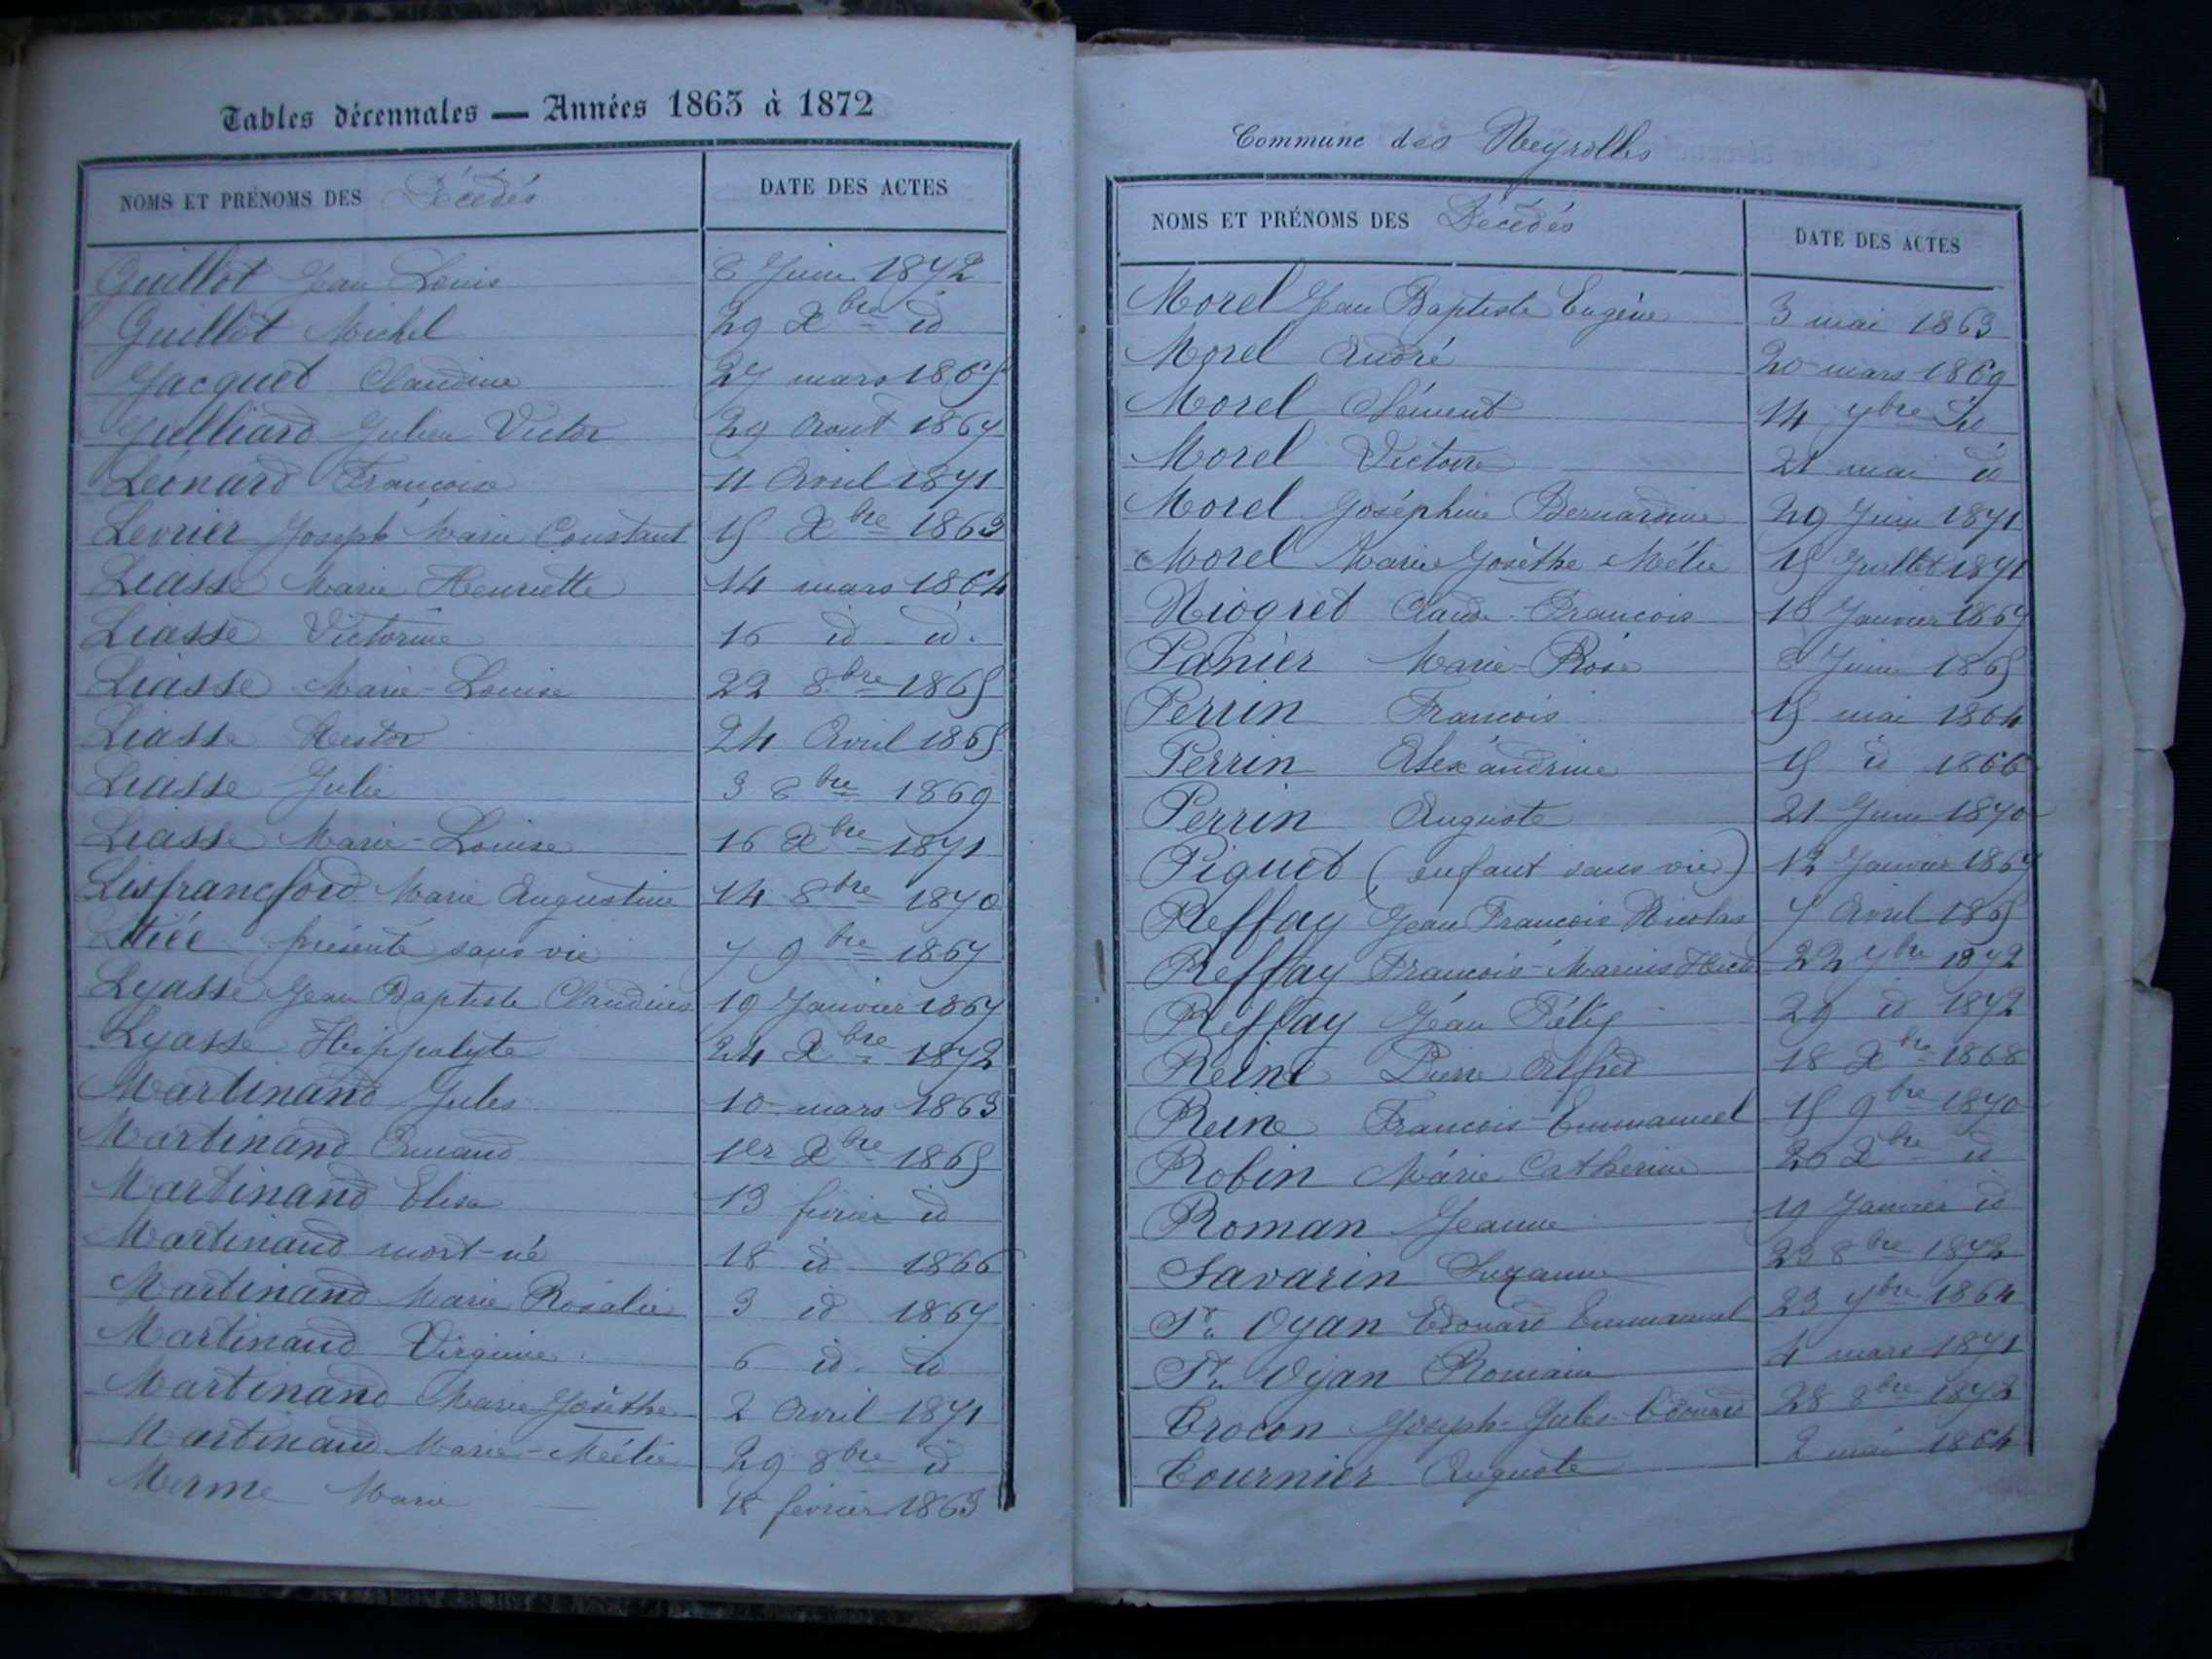 Tables décennales — Années 1863 à 1872
NOMS ET PRÉNOMS DES Décédés DATE DES ACTES
Guillot Jean Louis 8 Juin 1872
Guillot Michel 29 Xbre id
Jacquet Claudine 27 mars 1865
Julliard Julien Victor 29 Aout 1867
Léonard François 11 Avril 1871
Levrier Joseph Marie Constant 15 Xbre 1863
Liasse Marie Henriette 14 mars 1864
Liasse Victorine 16 id id.
Liasse Marie-Louise 22 8bre 1865
Liasse Nestor 24 Avril 1865
Liasse Julie 3 8bre 1869
Liasse Marie-Louise 16 Xbre 1871
Lisfrancford Marie Augustine 14 8bre 1870
présenté sans vie 7 9bre 1867
Lyasse Jean Baptiste Claudius 19 Janvier 1867
Lyasse Hippolyte 24 Xbre 1872
Martinand Jules 10 mars 1863
Martinand Armand 1er Xbre 1865
Martinand Elisa 13 février id
Martinand mort-né 18 id 1866
Martinand Marie Rosalie 3 id 1867
Martinand Virginie 6 id. id
Martinand Marie Josèthe 2 Avril 1871
Martinand Marie-Mélie 29 8bre id
Merme Marie 18 février 1863
Commune des Neyrolles
NOMS ET PRÉNOMS DES Décédés DATE DES ACTES
Morel Jean Baptiste Eugène 3 mai 1863
Morel André 20 mars 1869
Morel Clément 14 7bre id
Morel Victoire 21 mai id
Morel Joséphine Bernardine 29 Juin 1871
Morel Marie Josèthe Mélie 15 Juillet 1871
Niogret Claude-François 18 Janvier 1867
Panier Marie-Rose 8 Juin 1865
Perrin François 15 mai 1864
Perrin Alexandrine 15 id 1866
Perrin Auguste 21 Juin 1870
Piquet (enfant sans vie) 12 Janvier 1867
Reffay Jean François Nicolas 7 Avril 1865
Reffay François-Marius 22 7bre 1872
Reffay Jean Félix 29 id 1872
Reine Pierre Alfred 18 Xbre 1868
Reine François-Emmanuel 15 9bre 1870
Robin Marie Catherine 26 Xbre id
Roman Jeanne 19 Janvier id
Savarin Suzanne 23 8bre 1872
St. Oyan Edouard Emmanuel 23 7bre 1864
St. Oyan Romain 4 mars 1871
Trocon Joseph-Jules-Edouard 28 8bre 1872
Tournier Auguste 2 mai 1864